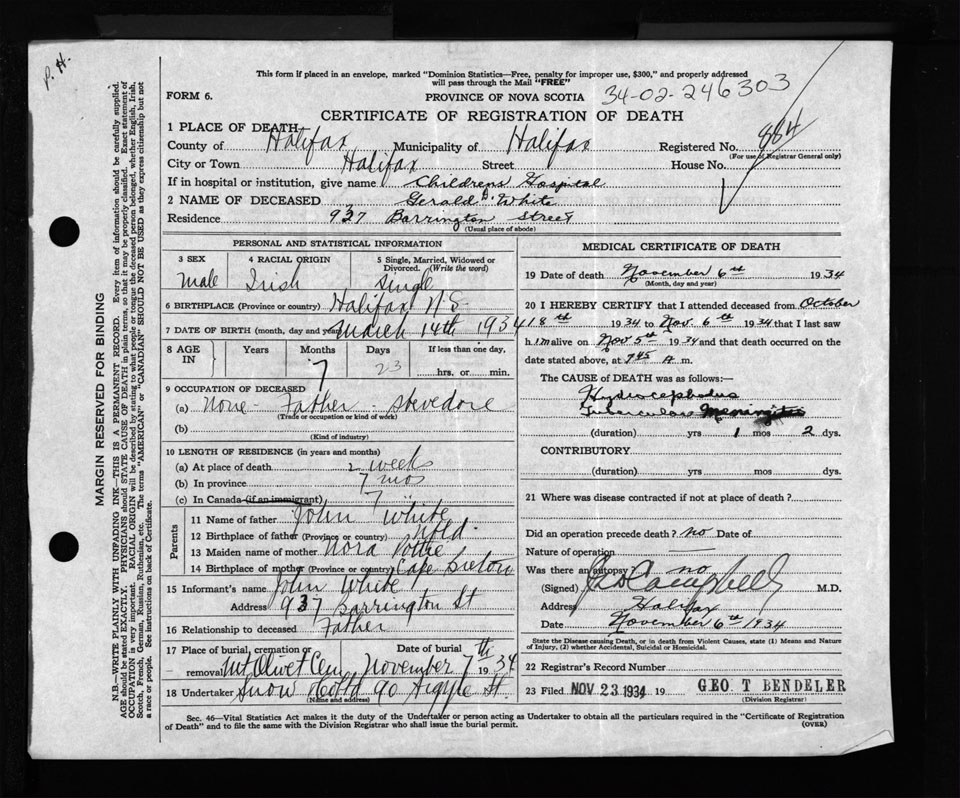 P. H.
This form if placed in an envelope, marked "Dominion Statistics—Free, penalty for improper use, $300," and properly addressed
will pass through the Mail "FREE"
FORM 6.
PROVINCE OF NOVA SCOTIA
34-02-246303
CERTIFICATE OF REGISTRATION OF DEATH
1 PLACE OF DEATH—
County of Halifax Municipality of Halifax Registered No. 884
(For use of Registrar General only)
City or Town Halifax Street House No.
If in hospital or institution, give name Childrens Hospital
2 NAME OF DECEASED Gerald White
Residence 937 Barrington Street
(Usual place of abode)
PERSONAL AND STATISTICAL INFORMATION
3 SEX 4 RACIAL ORIGIN 5 Single, Married, Widowed or Divorced. (Write the word)
Male Irish Single
6 BIRTHPLACE (Province or country) Halifax N.S.
7 DATE OF BIRTH (month, day and year) March 14th 1934
8 AGE IN Years Months Days If less than one day,
7 23 hrs. or min.
9 OCCUPATION OF DECEASED
(a) None- Father stevedore
(Trade or occupation or kind of work)
(b)
(Kind of industry)
10 LENGTH OF RESIDENCE (in years and months)
(a) At place of death 2 weeks
(b) In province 7 mos
(c) In Canada (if an immigrant) 7 "
Parents
11 Name of father John White
12 Birthplace of father (Province or country) Nfld.
13 Maiden name of mother Nora Pottie
14 Birthplace of mother (Province or country) Cape Breton
15 Informant's name John White
Address 937 Barrington St
16 Relationship to deceased Father
17 Place of burial, cremation or removal Date of burial
Mt Olivet Cem. November 7th 1934
18 Undertaker Snow & Co Ltd 90 Argyle St.
(Name and address)
MEDICAL CERTIFICATE OF DEATH
19 Date of death November 6th 1934
(Month, day and year)
20 I HEREBY CERTIFY that I attended deceased from October
18th 1934 to Nov. 6th 1934 that I last saw
him alive on Nov 5th 1934 and that death occurred on the
date stated above, at 7 45 A m.
The CAUSE of DEATH was as follows:—
Hydrocephalus
Tubercular Meningitis
(duration) yrs 1 mos 2 dys.
CONTRIBUTORY
(duration) yrs mos dys.
21 Where was disease contracted if not at place of death?
Did an operation precede death? no Date of
Nature of operation
Was there an autopsy no
(Signed) Campbell M.D.
Address Halifax
Date November 6th 1934
State the Disease causing Death, or in death from Violent Causes, state (1) Means and Nature
of Injury, (2) whether Accidental, Suicidal or Homicidal.
22 Registrar's Record Number
23 Filed NOV 23 1934 19 GEO T BENDELER
(Division Registrar)
Sec. 46—Vital Statistics Act makes it the duty of the Undertaker or person acting as Undertaker to obtain all the particulars required in the "Certificate of Registration
of Death" and to file the same with the Division Registrar who shall issue the burial permit.
(OVER)
MARGIN RESERVED FOR BINDING
N.B.—WRITE PLAINLY WITH UNFADING INK—THIS IS A PERMANENT RECORD. Every item of information should be carefully supplied.
AGE should be stated EXACTLY. PHYSICIANS should STATE CAUSE OF DEATH in plain terms, so that it may be properly classified. Exact statement of
OCCUPATION is very important. RACIAL ORIGIN will be described by stating to what people or tongue the deceased person belonged, whether English, Irish,
Scotch, French, German, Russian, Ruthenian, etc. The terms "AMERICAN" or "CANADIAN" SHOULD NOT BE USED as they express citizenship but not
a race or people. See instructions on back of Certificate.